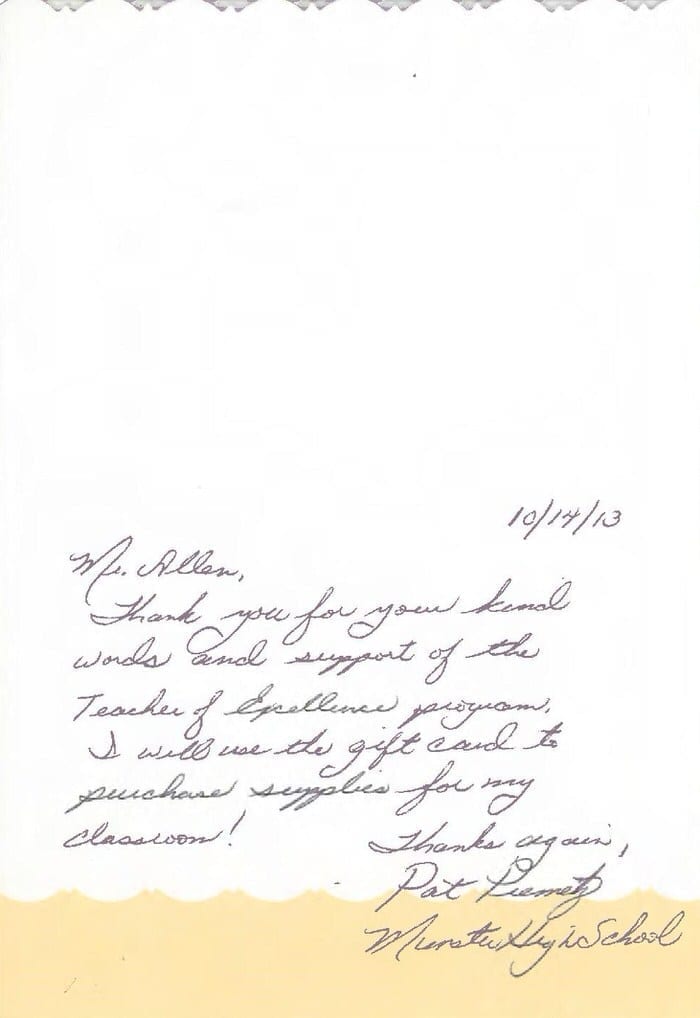 10/14/13
Mr. Allen,
Thank you for your kind
words and support of the
Teacher of Excellence program.
I will use the gift card to
purchase supplies for my
classroom!
Thanks again,
Pat
Munster High School